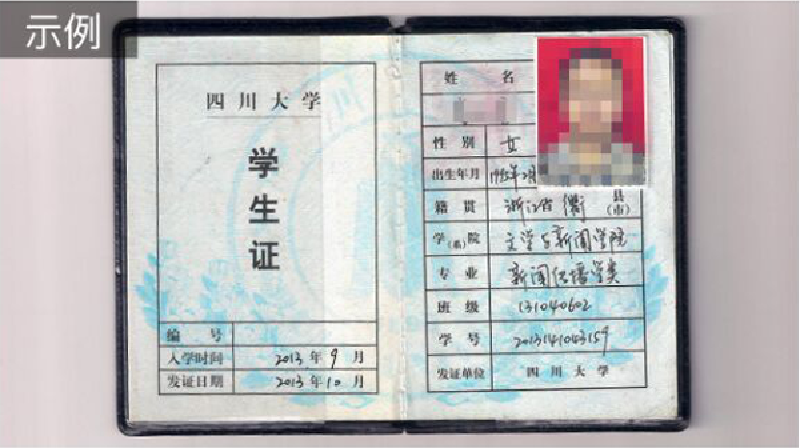 示例
四川大学
学生证
编号
入学时间 2013年9月
发证日期 2013年10月
姓名
性别 女
出生年月
籍贯 浙江省衢 县(市)
学(系)院 文学与新闻学院
专业 新闻传播学类
班级 131040602
学号 2013141043159
发证单位 四川大学